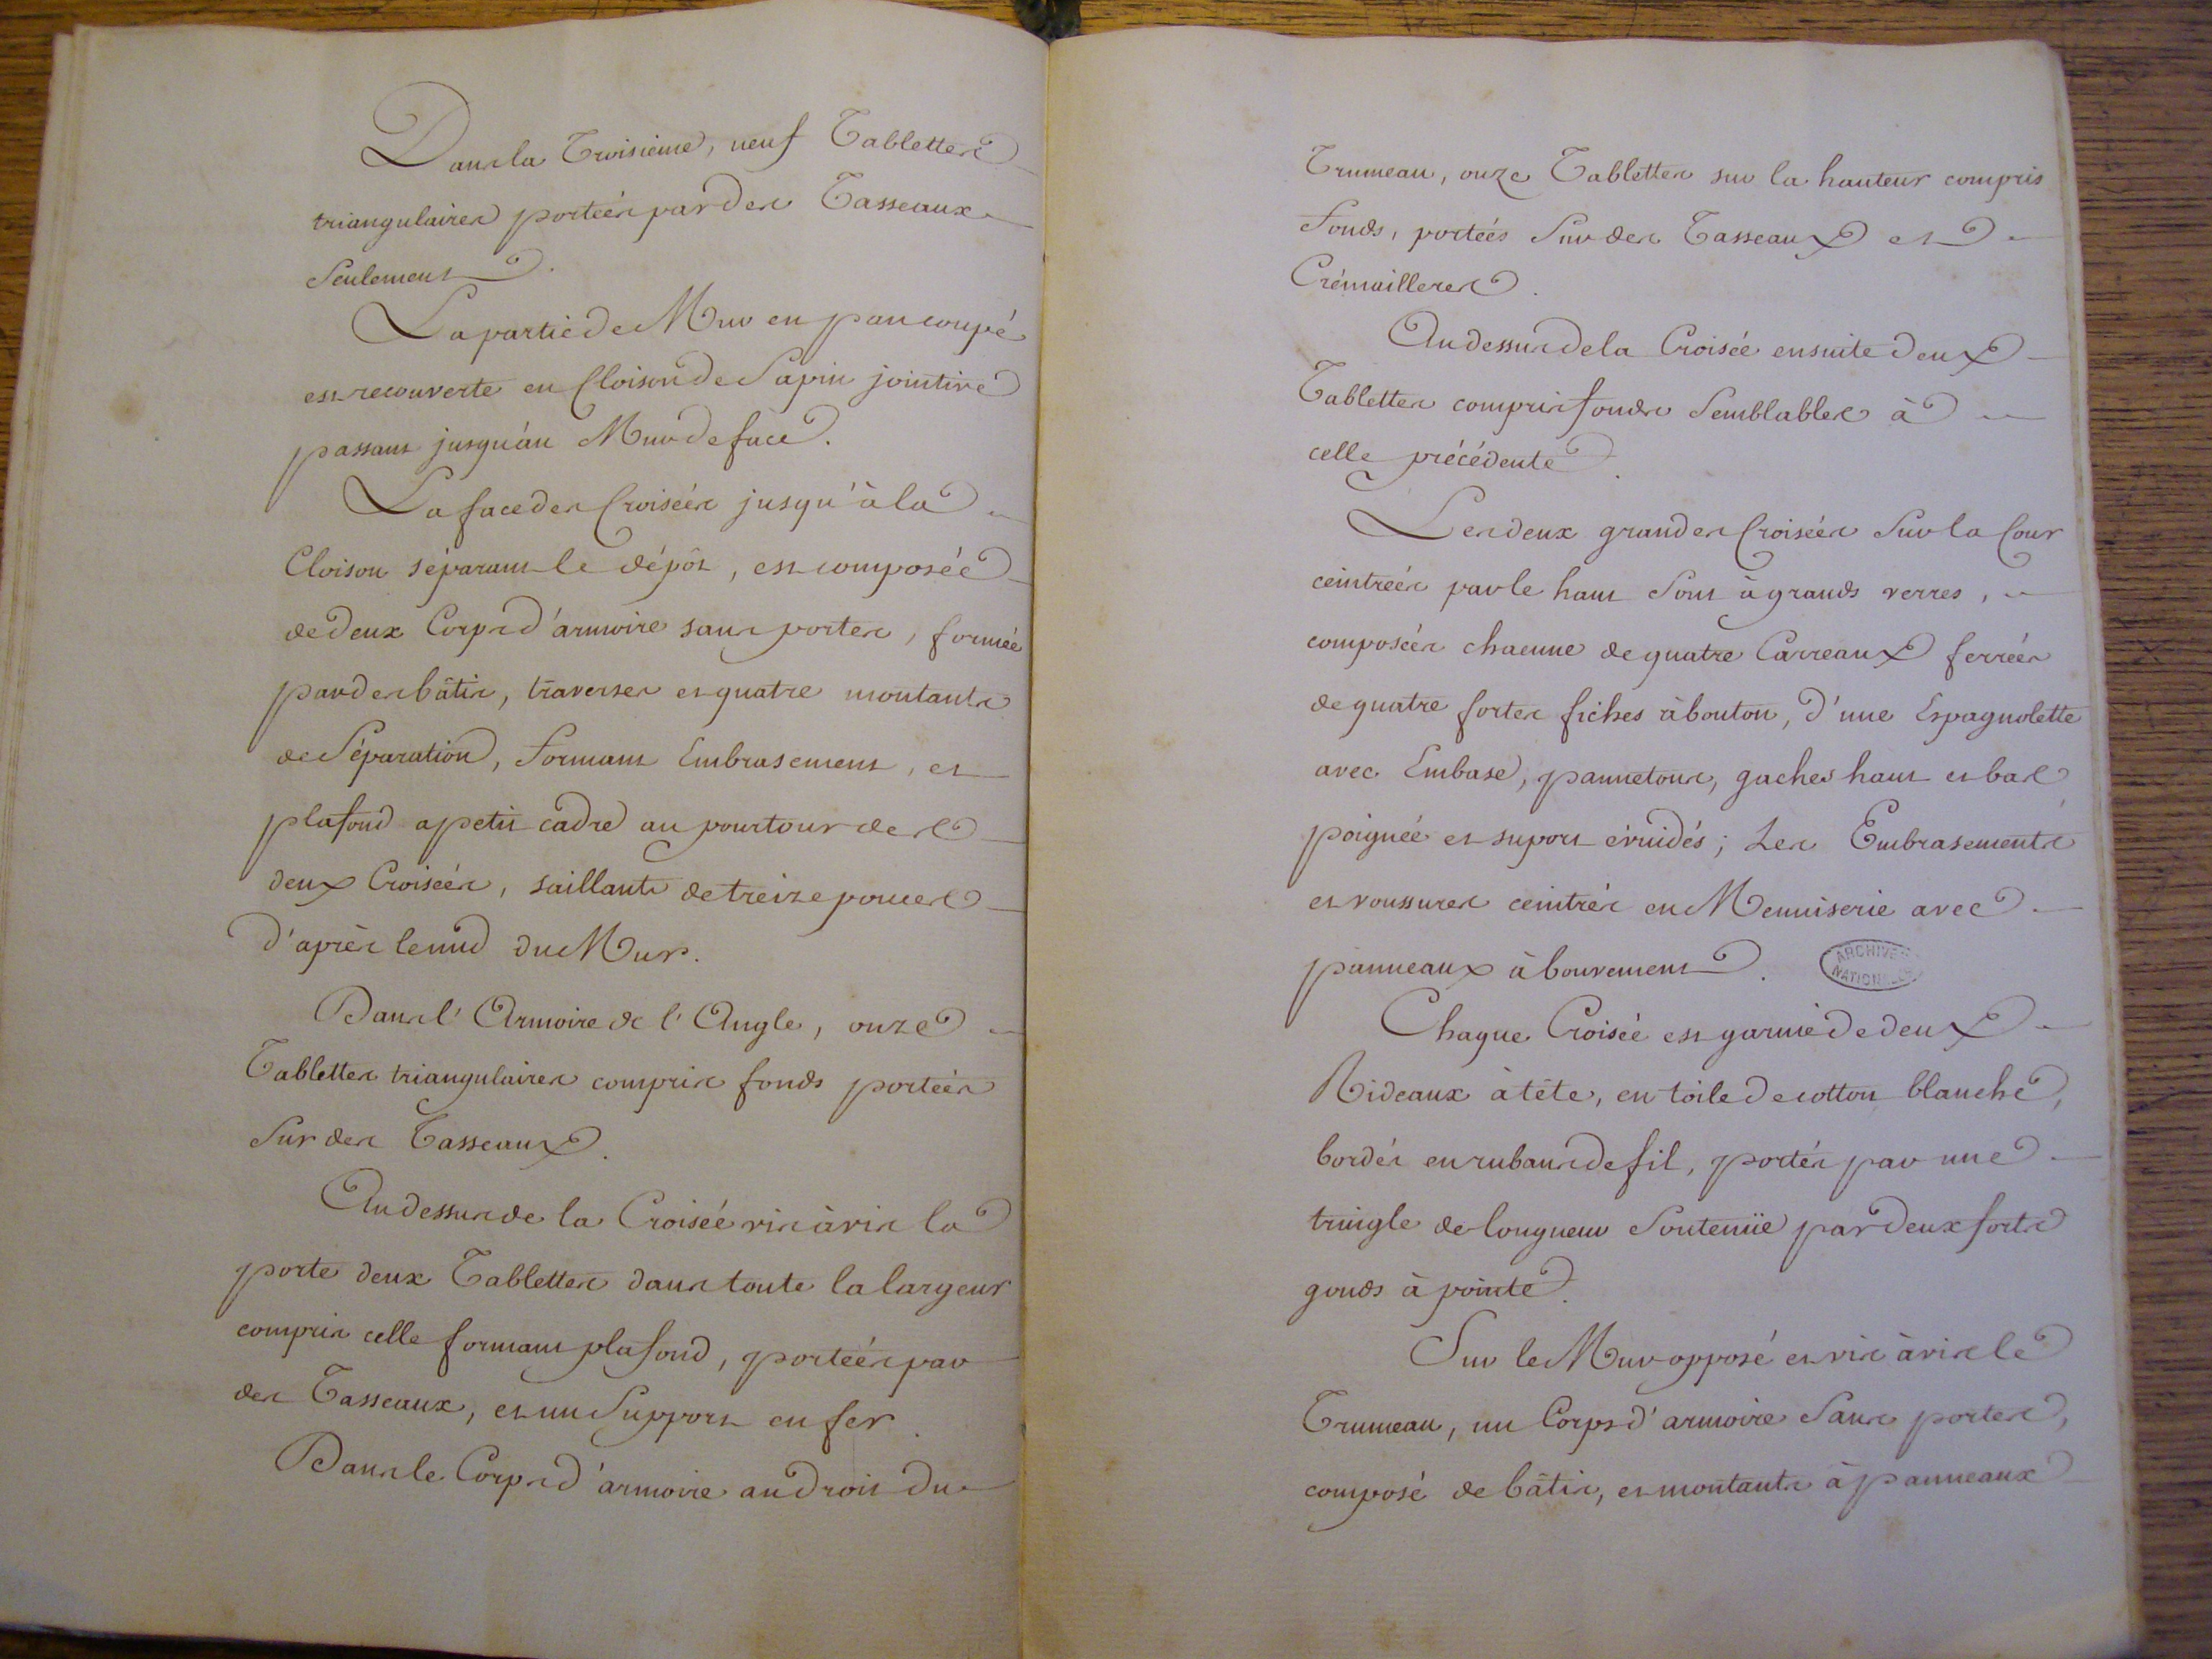 Dans la Troisieme, neuf Tablettes
triangulaires portées par des Tasseaux
Seulement.
La partie de Mur en pan coupé
est recouverte en Cloison de Sapin jointive
passant jusqu'au Mur de face.
La face des Croisées jusqu'à la
Cloison séparant le dépôt, est composée
de deux Corps d'armoire sans portes, formée
par des bâtis, traverses et quatre montants
de Séparation, formant Embrasement, et
plafond a petit cadre au pourtour des
deux Croisées, saillants de treize pouces
d'après le nud du Mur.
Dans l'Armoire de l'Angle, onze
Tablettes triangulaires compris fonds portées
Sur des Tasseaux.
Au dessus de la Croisée vis à vis la
porte deux Tablettes dans toute la largeur
compris celle formant plafond, portées par
des Tasseaux, et un Support en fer.
Dans le Corps d'armoire au droit du
Trumeau, onze Tablettes sur la hauteur compris
fonds, portées Sur des Tasseaux et
Crémailleres.
Au dessus de la Croisée ensuite deux
Tablettes compris fonds Semblables à
celle précédente.
Les deux grandes Croisées Sur la Cour
ceintrées par le haut Sont à grands verres,
composées chacune de quatre Carreaux ferrées
de quatre fortes fiches à bouton, d'une Espagnolette
avec Embase, pannetons, gaches haut et bas
poignée et suport évuidés; Les Embrasements
et voussures ceintrés en Menuiserie avec
panneaux à bouvement.
ARCHIVES
NATIONALES
Chaque Croisée est garnie de deux
Rideaux à tête, en toile de cotton blanche,
bordés en rubans de fil, portés par une
tringle de longueur Soutenüe par deux forts
gonds à pointe.
Sur le Mur opposé et vis à vis le
Trumeau, un Corps d'armoire Sans portes,
composé de bâtis, et montants à panneaux